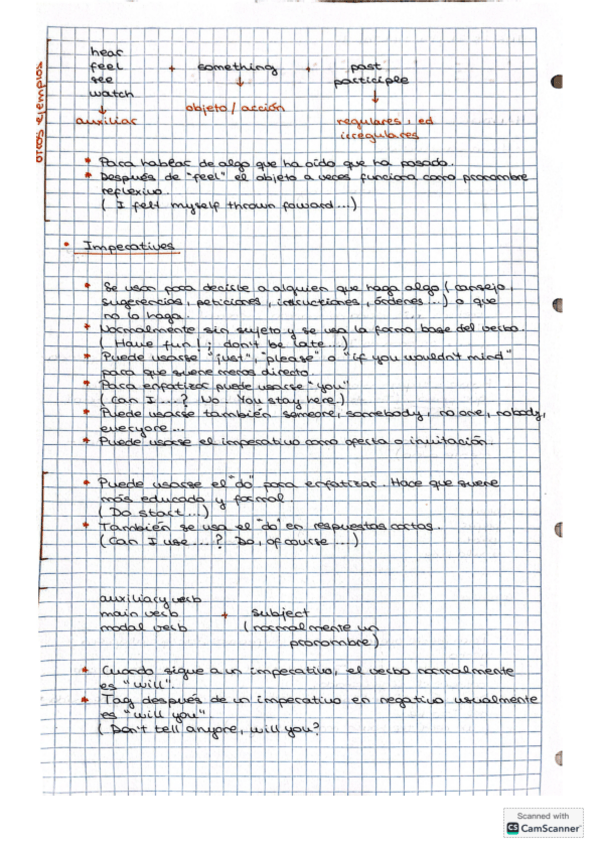 otros ejemplos
hear
feel + something + past
see participle
watch
auxiliar
objeto / acción
regulares: ed
irregulares
Para hablar de algo que ha oído que ha pasado.
Después de "feel" el objeto a veces funciona como pronombre
reflexivo.
( I felt myself thrown foward ...)
Imperatives
Se usan para decirle a alguien que haga algo ( consejo,
sugerencias, peticiones, intructiones, órdenes ...) o que
no lo haga.
Normalmente sin sujeto y se usa la forma base del verbo.
( Have fun! ; don't be late ...)
Puede usarse "just", "please" o "if you wouldn't mind"
para que suene menos directo.
Para enfatizar puede usarse "you"
( Can I ...? No. You stay here )
Puede usarse también someone, somebody, no one, nobody,
everyone ...
Puede usarse el imperativo como oferta o invitación.
Puede usarse el "do" para enfatizar. Hace que suene
más educado y formal.
( Do start ...)
También se usa el "do" en respuestas cortas.
( Can I use ....? Do, of course ...)
auxiliary verb
main verb + subject
modal verb ( normalmente un
pronombre )
Cuando sigue a un imperativo, el verbo normalmente
es "will".
Tag después de un imperativo en negativo usualmente
es "will you"
( Don't tell anyone, will you?
Scanned with
CS CamScanner